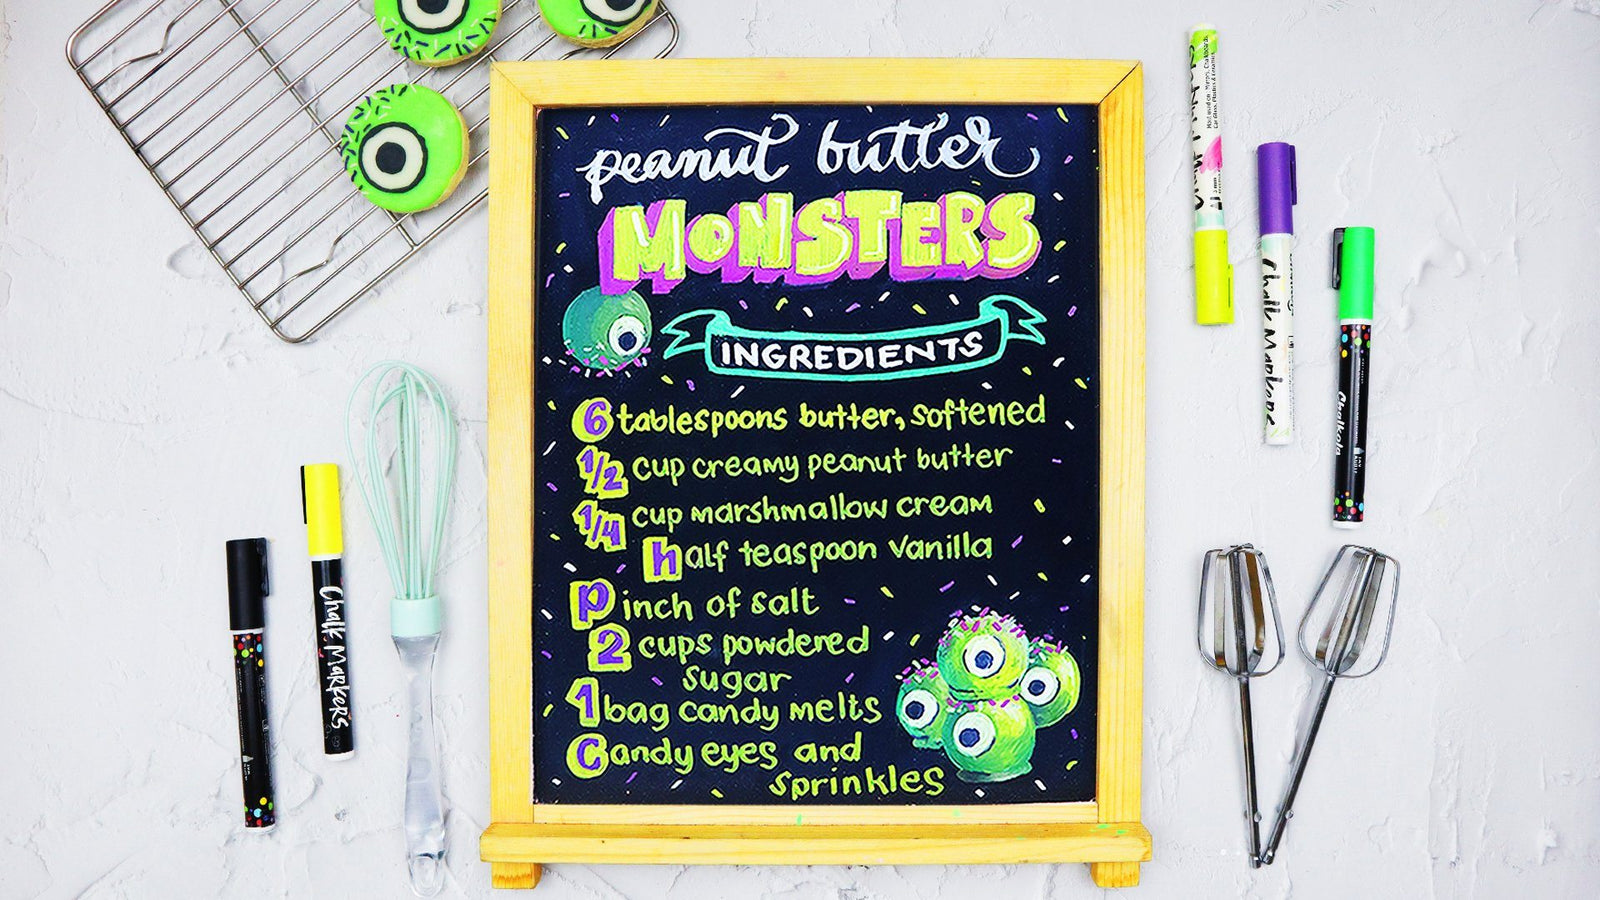 peanut butter
MONSTERS
INGREDIENTS
6 tablespoons butter, softened
1/2 cup creamy peanut butter
1/4 cup marshmallow cream
half teaspoon vanilla
pinch of salt
2 cups powdered
sugar
1 bag candy melts
Candy eyes and
sprinkles
Chalk Markers
Chalk Markers
Chalkola